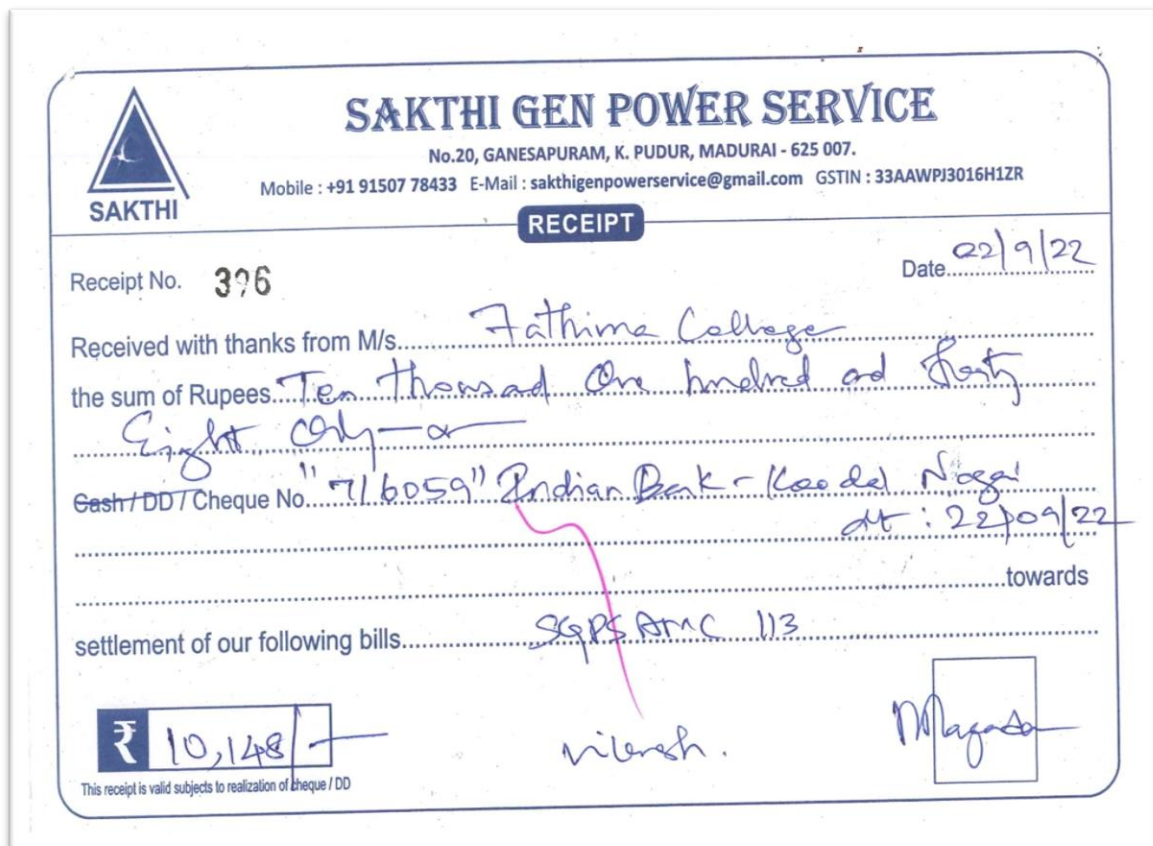 SAKTHI GEN POWER SERVICE
No.20, GANESAPURAM, K. PUDUR, MADURAI - 625 007.
Mobile : +91 91507 78433 E-Mail : sakthigenpowerservice@gmail.com GSTIN : 33AAWPJ3016H1ZR
SAKTHI
RECEIPT
Receipt No. 396
Date 22/9/22
Received with thanks from M/s. Fathima College
the sum of Rupees Ten thousand One hundred and forty
Eight Only
Cash / DD / Cheque No. "716059" Indian Bank - Koodal Nagar
dt : 22/09/22
towards
settlement of our following bills SGPS AMC 113
₹ 10,148/-
This receipt is valid subjects to realization of cheque / DD